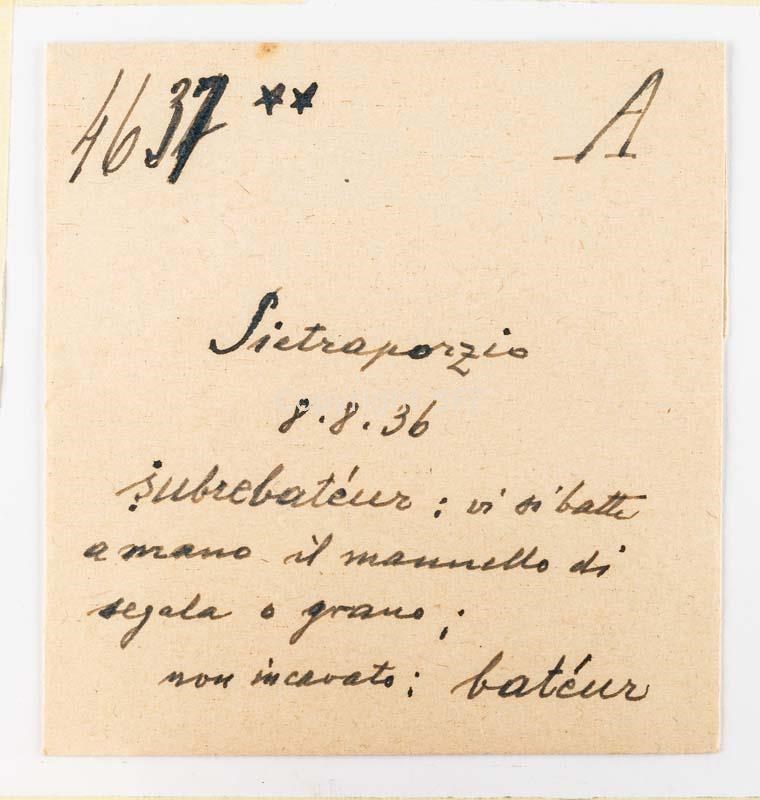 4637 ** A
Pietraporzio
8.8.36
ṣubrebatéur : vi si batte
a mano il mannello di
segala o grano ;
non incavato : batéur